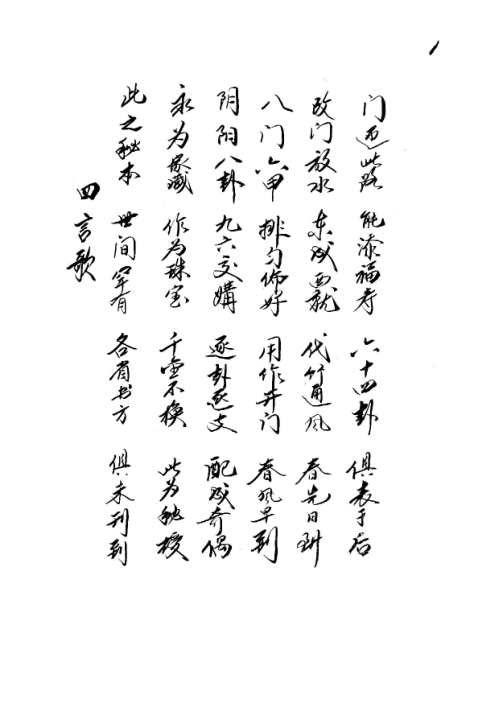 1
四言歌
此之秘本 世间罕有 各省书方 俱未刊到
永为家藏 作为珠宝 千金不换 此为秘授
阴阳八卦 九六交媾 逐卦逐爻 配成奇偶
八门六甲 排匀佈好 用作开门 春风早到
改门放水 东成西就 代竹通风 春先日到
门迎此路 能添福寿 六十四卦 俱表于后